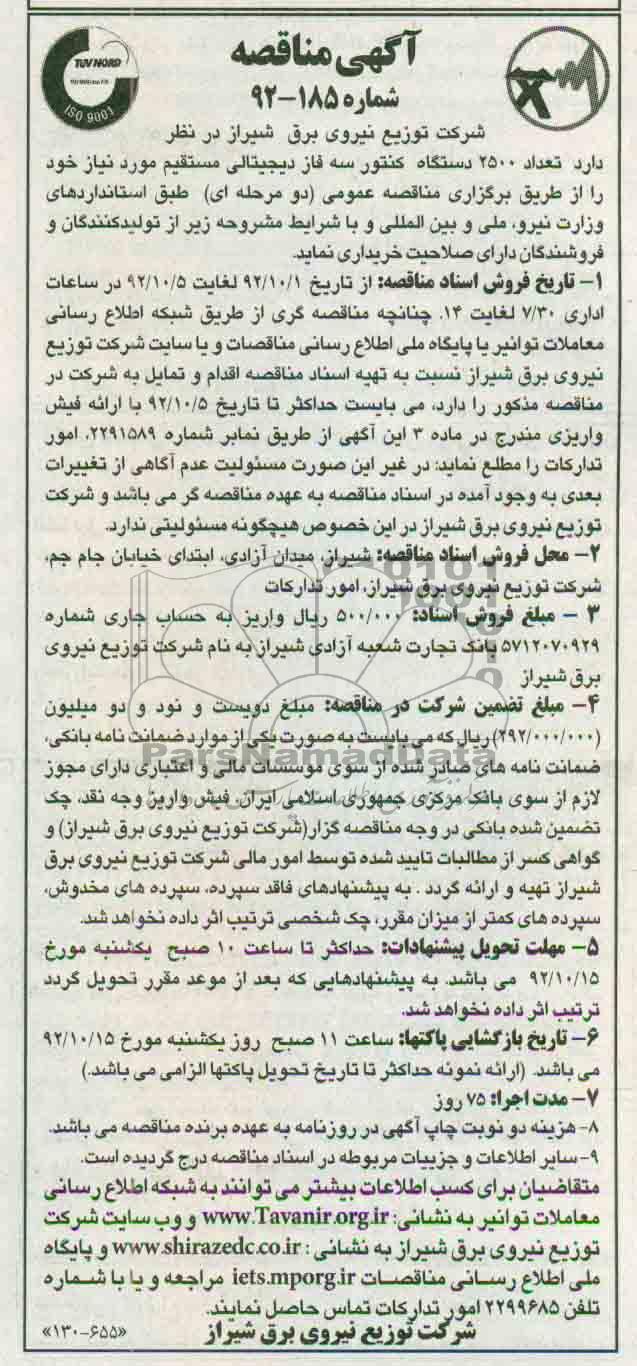 آگهی مناقصه
شماره ۱۸۵-۹۲
TUV NORD
ISO 9001
شرکت توزیع نیروی برق شیراز در نظر
دارد تعداد ۲۵۰۰ دستگاه کنتور سه فاز دیجیتالی مستقیم مورد نیاز خود
را از طریق برگزاری مناقصه عمومی (دو مرحله ای) طبق استانداردهای
وزارت نیرو، ملی و بین المللی و با شرایط مشروحه زیر از تولیدکنندگان و
فروشندگان دارای صلاحیت خریداری نماید.
۱- تاریخ فروش اسناد مناقصه: از تاریخ ۹۲/۱۰/۱ لغایت ۹۲/۱۰/۵ در ساعات
اداری ۷/۳۰ لغایت ۱۴. چنانچه مناقصه گری از طریق شبکه اطلاع رسانی
معاملات توانیر یا پایگاه ملی اطلاع رسانی مناقصات و یا سایت شرکت توزیع
نیروی برق شیراز نسبت به تهیه اسناد مناقصه اقدام و تمایل به شرکت در
مناقصه مذکور را دارد، می بایست حداکثر تا تاریخ ۹۲/۱۰/۵ با ارائه فیش
واریزی مندرج در ماده ۳ این آگهی از طریق نمابر شماره ۲۲۹۱۵۸۹، امور
تدارکات را مطلع نماید: در غیر این صورت مسئولیت عدم آگاهی از تغییرات
بعدی به وجود آمده در اسناد مناقصه به عهده مناقصه گر می باشد و شرکت
توزیع نیروی برق شیراز در این خصوص هیچگونه مسئولیتی ندارد.
۲- محل فروش اسناد مناقصه: شیراز، میدان آزادی، ابتدای خیابان جام جم،
شرکت توزیع نیروی برق شیراز، امور تدارکات
۳ - مبلغ فروش اسناد: ۵۰۰/۰۰۰ ریال واریز به حساب جاری شماره
۵۷۱۲۰۷۰۹۲۹ بانک تجارت شعبه آزادی شیراز به نام شرکت توزیع نیروی
برق شیراز
۴- مبلغ تضمین شرکت در مناقصه: مبلغ دویست و نود و دو میلیون
(۲۹۲/۰۰۰/۰۰۰) ریال که می بایست به صورت یکی از موارد ضمانت نامه بانکی،
ParsNamadData
ضمانت نامه های صادر شده از سوی موسسات مالی و اعتباری دارای مجوز
لازم از سوی بانک مرکزی جمهوری اسلامی ایران، فیش واریز وجه نقد، چک
تضمین شده بانکی در وجه مناقصه گزار(شرکت توزیع نیروی برق شیراز) و
گواهی کسر از مطالبات تایید شده توسط امور مالی شرکت توزیع نیروی برق
شیراز تهیه و ارائه گردد . به پیشنهادهای فاقد سپرده، سپرده های مخدوش،
سپرده های کمتر از میزان مقرر، چک شخصی ترتیب اثر داده نخواهد شد.
۵- مهلت تحویل پیشنهادات: حداکثر تا ساعت ۱۰ صبح یکشنبه مورخ
۹۲/۱۰/۱۵ می باشد. به پیشنهادهایی که بعد از موعد مقرر تحویل گردد
ترتیب اثر داده نخواهد شد.
۶- تاریخ بازگشایی پاکتها: ساعت ۱۱ صبح روز یکشنبه مورخ ۹۲/۱۰/۱۵
می باشد. (ارائه نمونه حداکثر تا تاریخ تحویل پاکتها الزامی می باشد.)
۷- مدت اجرا: ۷۵ روز
۸- هزینه دو نوبت چاپ آگهی در روزنامه به عهده برنده مناقصه می باشد.
۹- سایر اطلاعات و جزییات مربوطه در اسناد مناقصه درج گردیده است.
متقاضیان برای کسب اطلاعات بیشتر می توانند به شبکه اطلاع رسانی
معاملات توانیر به نشانی: www.Tavanir.org.ir و وب سایت شرکت
توزیع نیروی برق شیراز به نشانی : www.shirazedc.co.ir و پایگاه
ملی اطلاع رسانی مناقصات iets.mporg.ir مراجعه و یا با شماره
تلفن ۲۲۹۹۶۸۵ امور تدارکات تماس حاصل نمایند.
شرکت توزیع نیروی برق شیراز
«۱۳۰-۶۵۵»